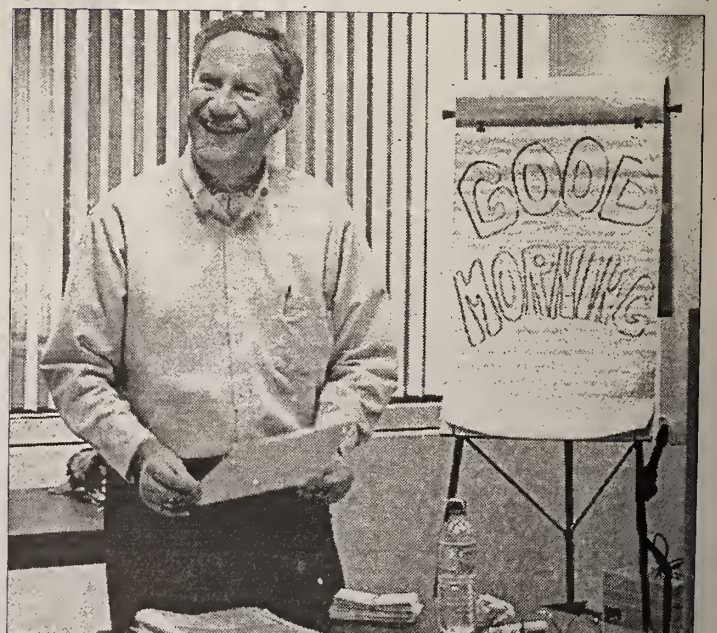 GOOD
MORNING